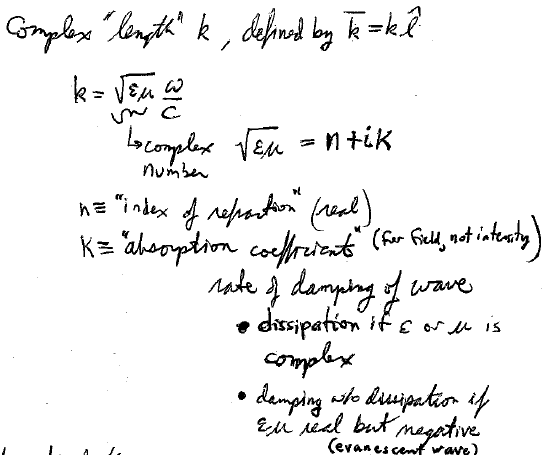 Complex "length" k, defined by k̅ = k l̂
k = √εμ ω/c
↳ complex number √εμ = n + iK
n ≡ "index of refraction" (real)
K ≡ "absorption coefficients" (for field, not intensity)
rate of damping of wave
• dissipation if ε or μ is
complex
• damping w/o dissipation if
εμ real but negative
(evanescent wave)